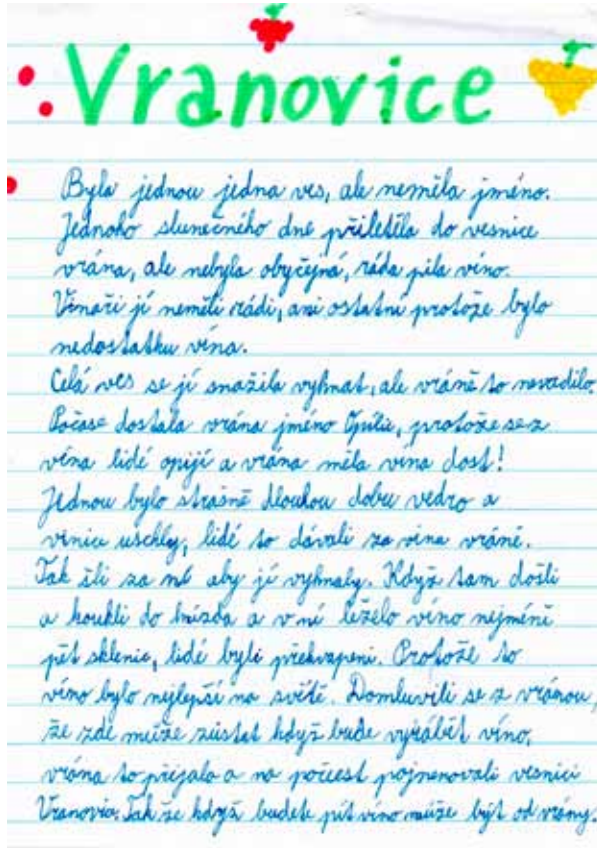 Vranovice
Byla jednou jedna ves, ale neměla jméno.
Jednoho slunečného dne přiletěla do vesnice
vrána, ale nebyla obyčejná, ráda pila víno.
Vinaři jí neměli rádi, ani ostatní protože bylo
nedostatku vína.
Celá ves se jí snažila vyhnat, ale vráně to nevadilo.
Počase dostala vrána jméno Opilie, protože se z
vína lidé opijí a vrána měla vína dost!
Jednou bylo strašně dlouhou dobu vedro a
vinice uschly, lidé to dávali za vina vráně.
Tak šli za ní aby jí vyhnaly. Když tam došli
a koukli do hnízda a v né leželo víno nejméně
pět sklenic, lidé byli překvapeni. Protože to
víno bylo nejlepší na světě. Domluvili se z vránou,
že zde může zůstat když bude vyrábět víno,
vrána to přijala a na počest pojmenovali vesnici
Vranovice. Tak že když budete pít víno může být od vrány.